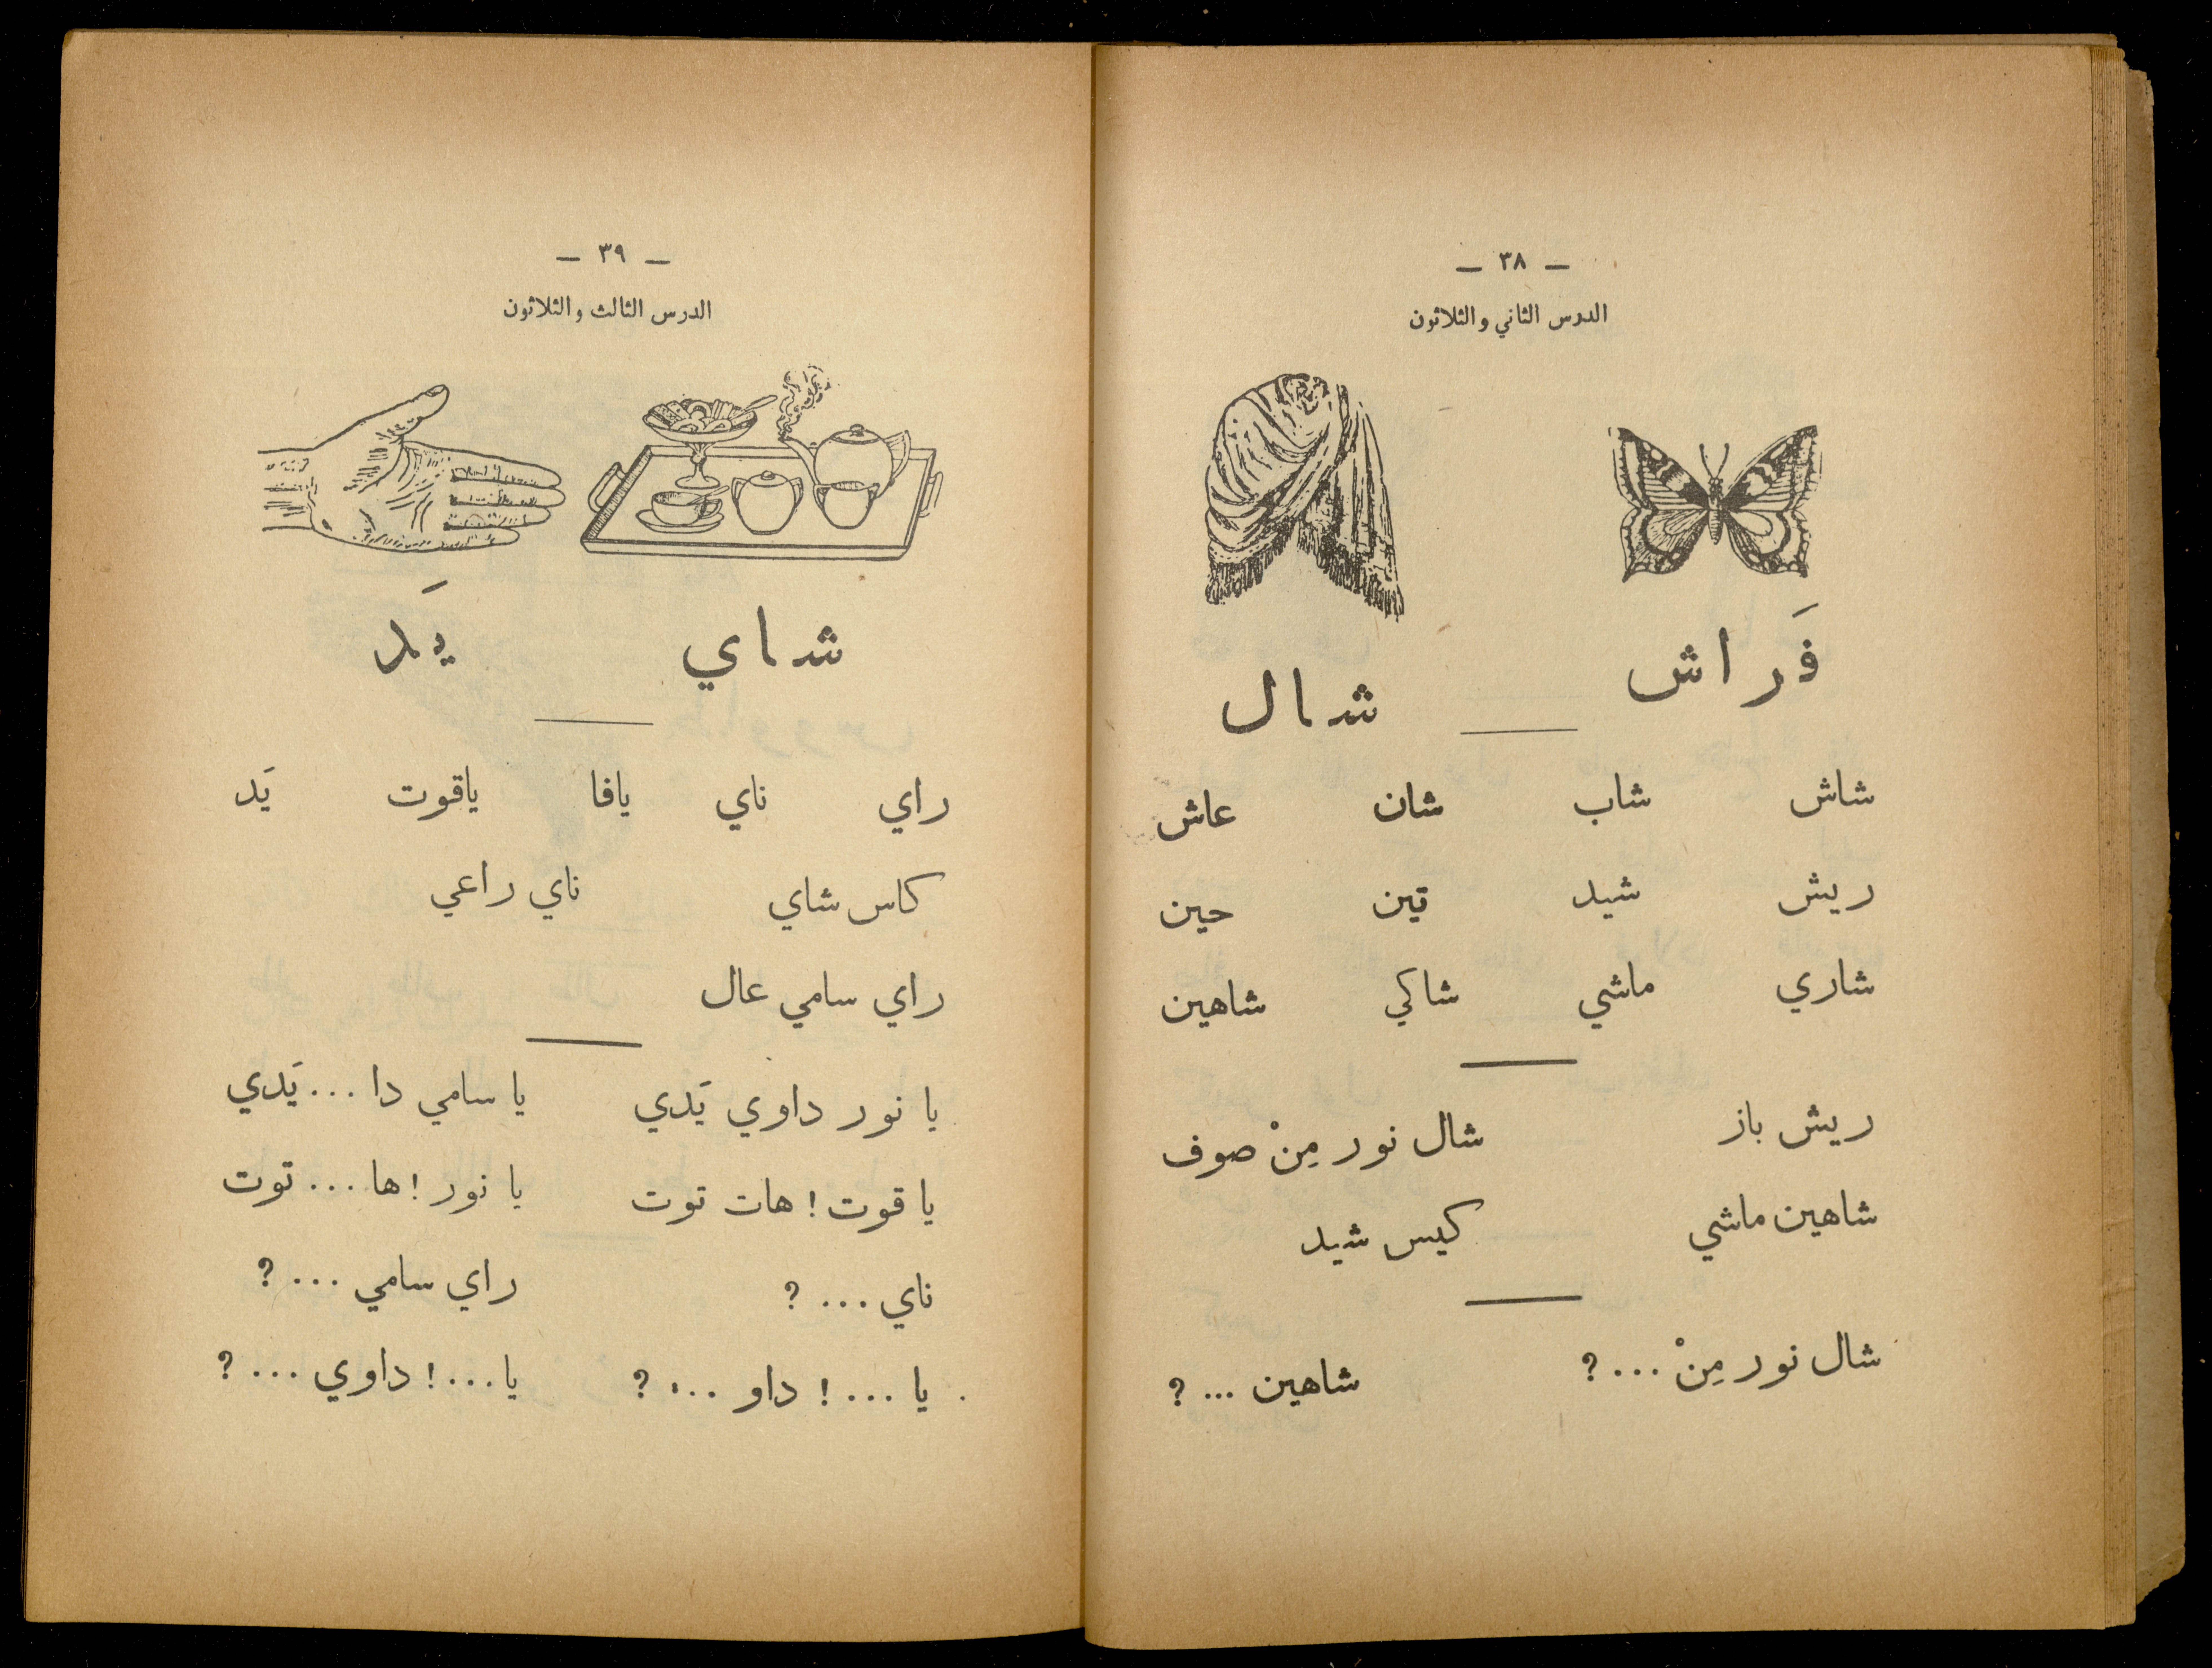 — ٣٨ —
الدرس الثاني والثلاثون
فَراش شال
شاش شاب شان عاش
ريش شيد تين حين
شاري ماشي شاكي شاهين
ريش باز شال نور مِنْ صوف
شاهين ماشي كيس شيد
شال نور مِنْ ... ؟ شاهين ... ؟
— ٣٩ —
الدرس الثالث والثلاثون
شاي يَد
راي ناي يافا ياقوت يَد
كاس شاي ناي راعي
راي سامي عال
يا نور داوي يَدي يا سامي دا ... يَدي
يا قوت ! هات توت يا نور ! ها ... توت
ناي ... ؟ راي سامي ... ؟
يا ... ! داو ... ؟ يا ... ! داوي ... ؟